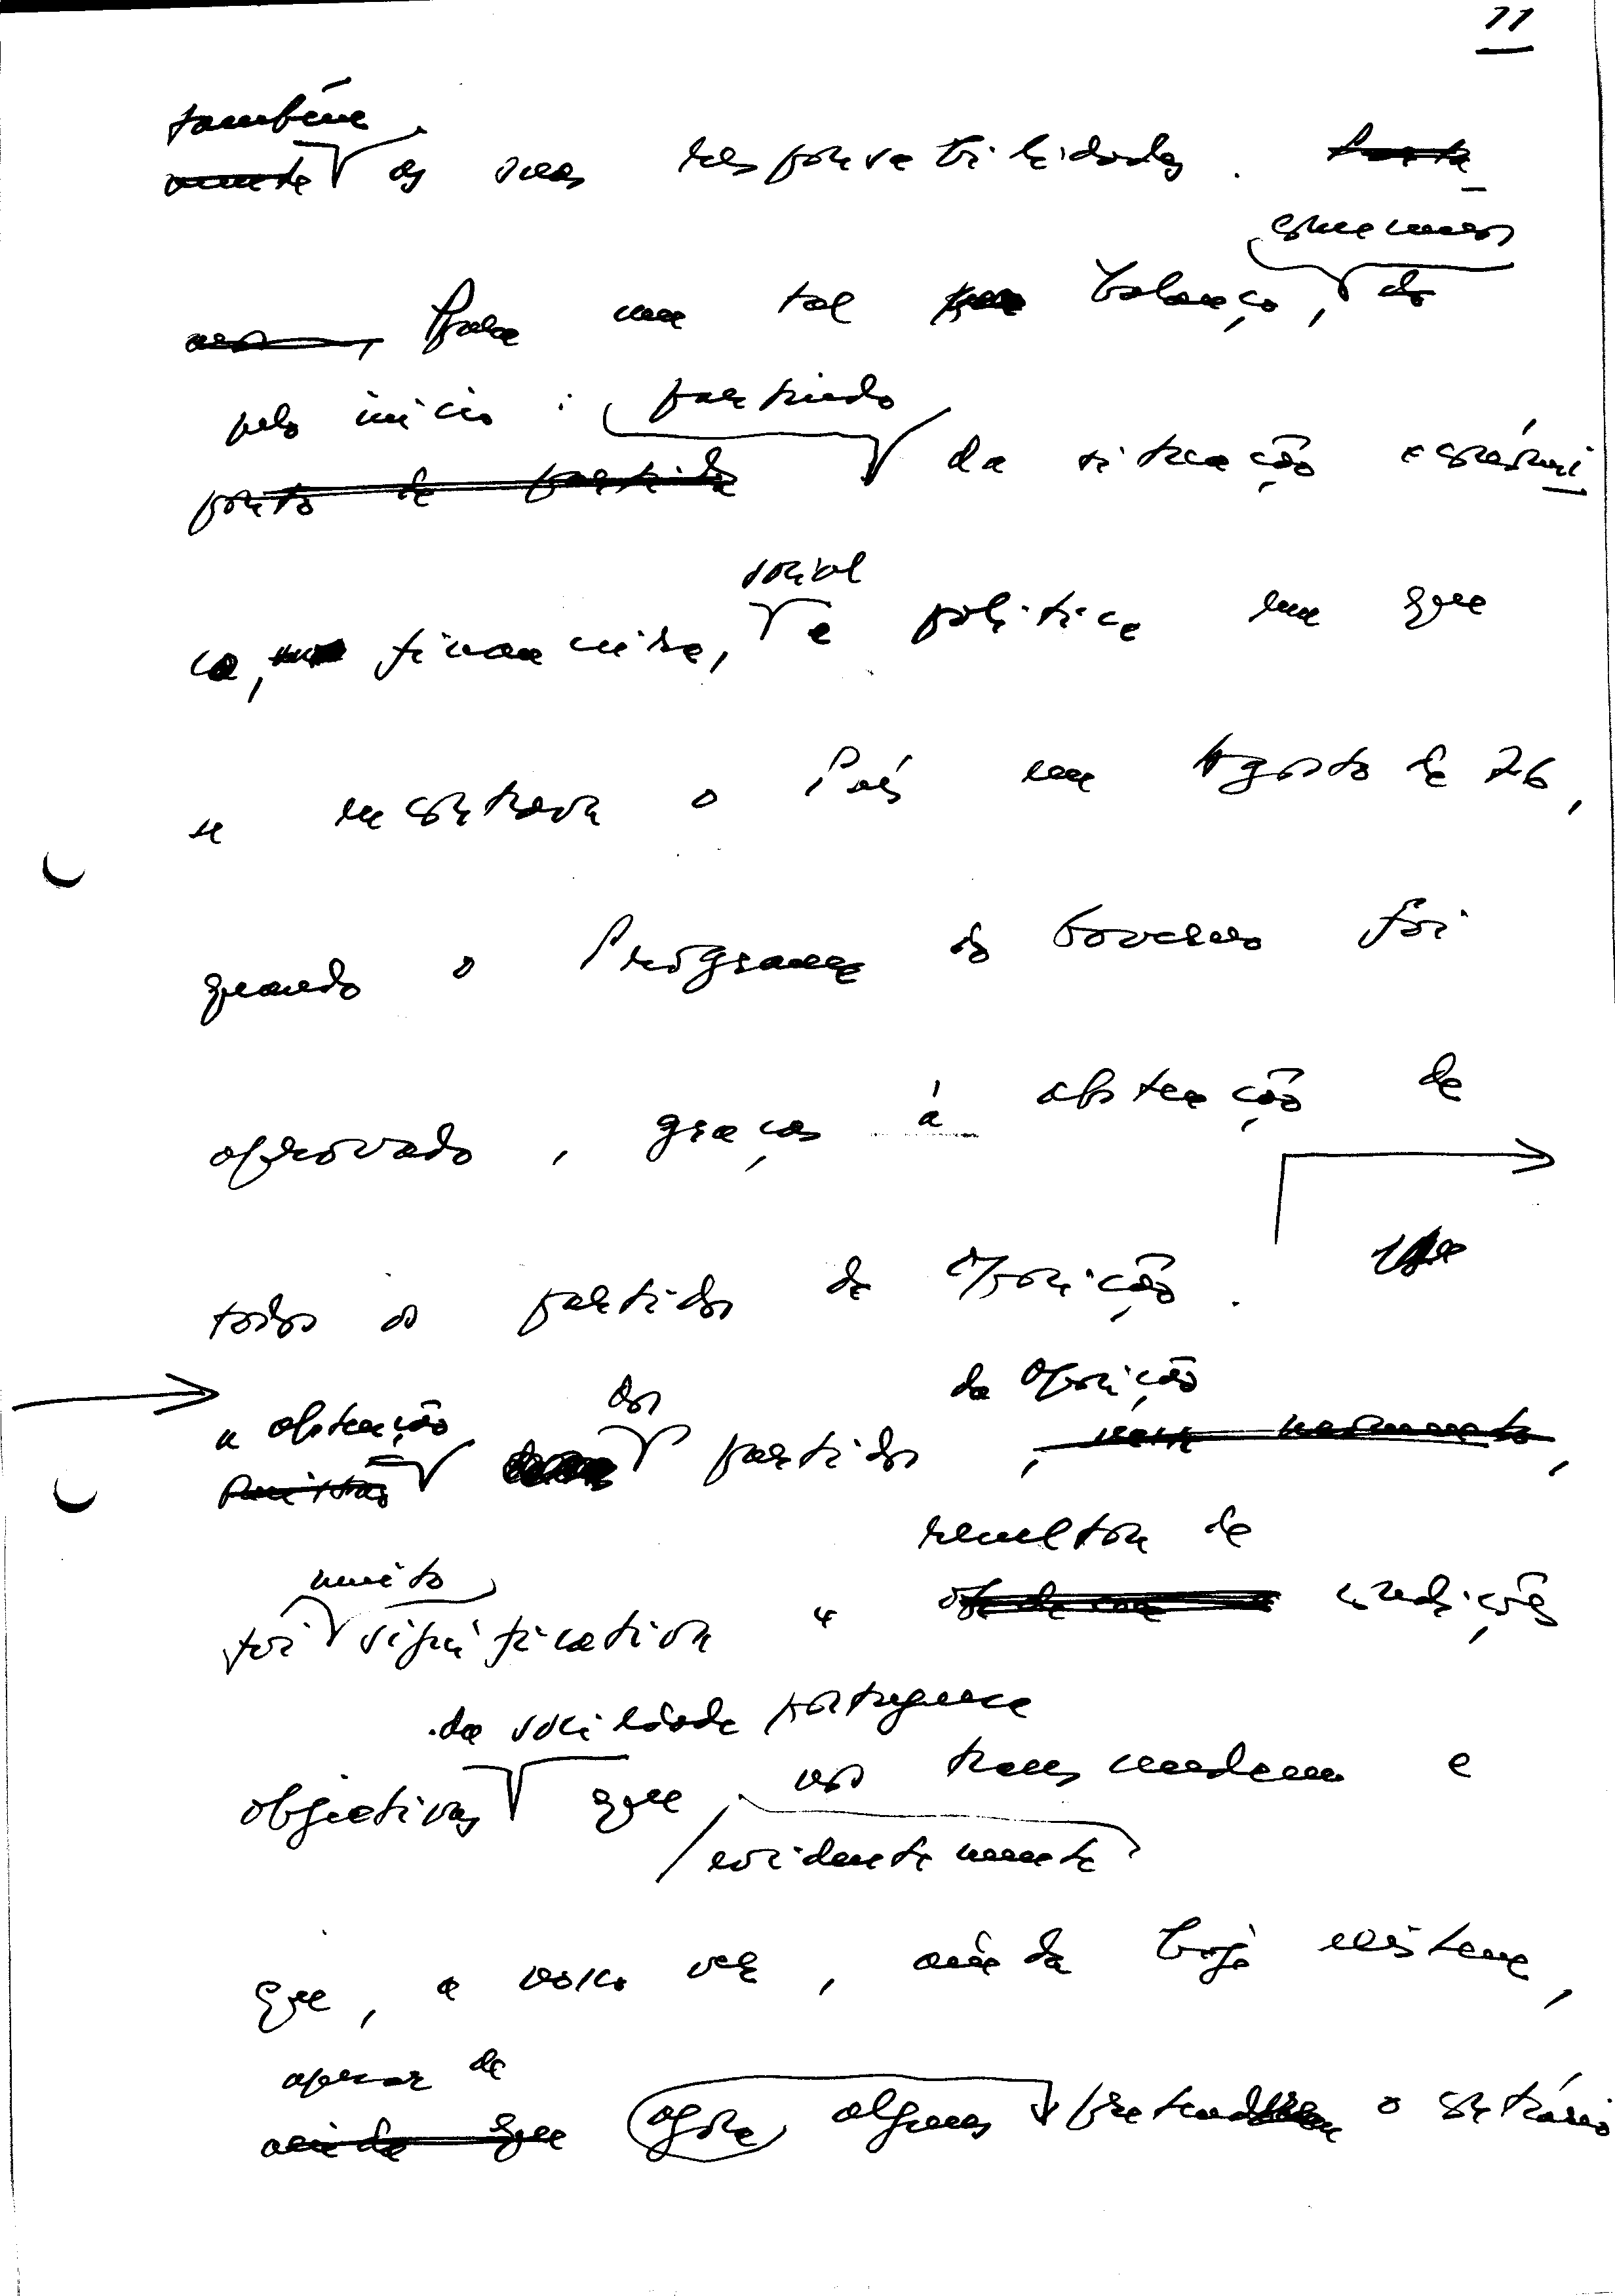 11
também
as suas responsabilidades.
comecemos
Para um tal balanço, do
pelo início: partindo
ponto de partida da situação económi
social
ca, financeira, e política em que
se encontrava o País em Agosto de 76,
quando o Programa do Governo foi
aprovado, graças à abstenção de
todos os partidos da Oposição.
a abstenção dos da Oposição
partidos,
muito resultou de
foi significativa e condições
da sociedade portuguesa
objectivas que nos transcendem e
evidentemente
que, a nosso ver, ainda hoje existem,
apesar de
ainda que agora alguns pretenderem o contrário